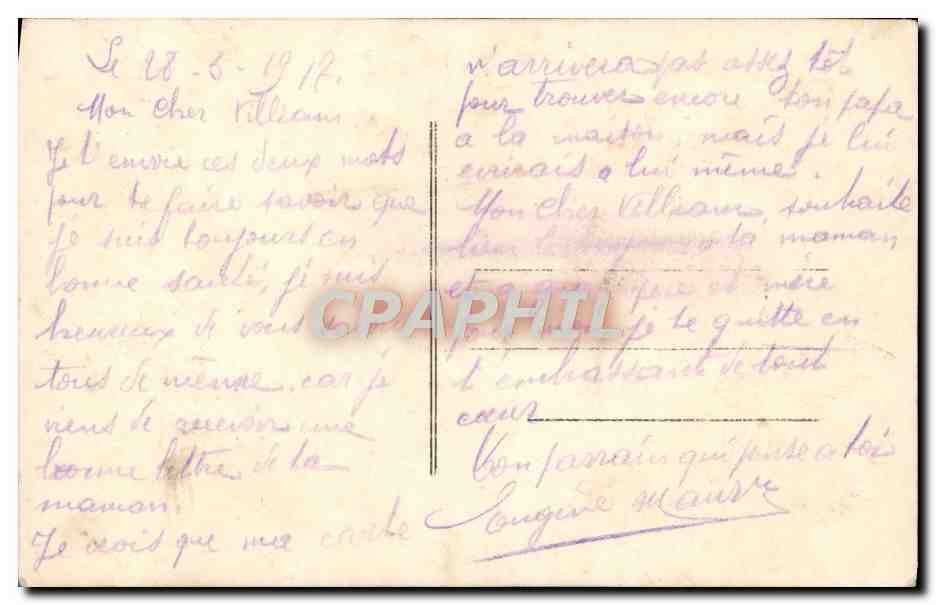 Le 28-5-1917.
Mon cher William
Je t'envoie ces deux mots
pour te faire savoir que
je suis toujours en
bonne santé, je suis
heureux de vous
tous de même. car je
viens de recevoir une
bonne lettre de ta
maman.
Je crois que ma carte
n'arrivera pas assez tôt
pour trouver encore ton papa
a la maison, mais je lui
écrirais a lui même.
Mon cher William, souhaite
bien le bonjour a ta maman,
et a grand père et mère
je te quitte en
t'embrassant de tout
cœur
Ton parrain qui pense a toi
Eugène
CPAPHIL